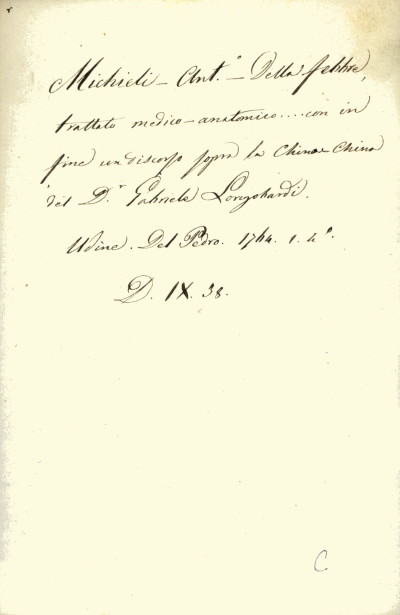 Michieli – Ant.° – Della febbre,
trattato medico-anatomico....con in
fine un discorso sopra la China-China
del D.r Gabriele Longobardi.
Udine. Del Pedro. 1764. 1. 4°.
D. IX. 38.
C